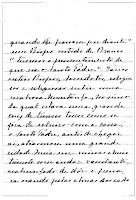 quando
um Bispo vestido de Branco
tivemos o pressentimento de
que era o Santo Padre". Varios
outros Bispos, Sacerdotes, religio
sos e religiosas subir uma
montanha, no cimo
da qual estava uma grande
Cruz de troncos toscos como se
fôra de sobreiro com a casca;
o Santo Padre, antes de chegar
aí, atravessou uma grande
cidade meia em ruínas, e meio
trémulo com andar vacilante,
acabrunhado de dôr e pena,
ia orando pelas almas dos cada